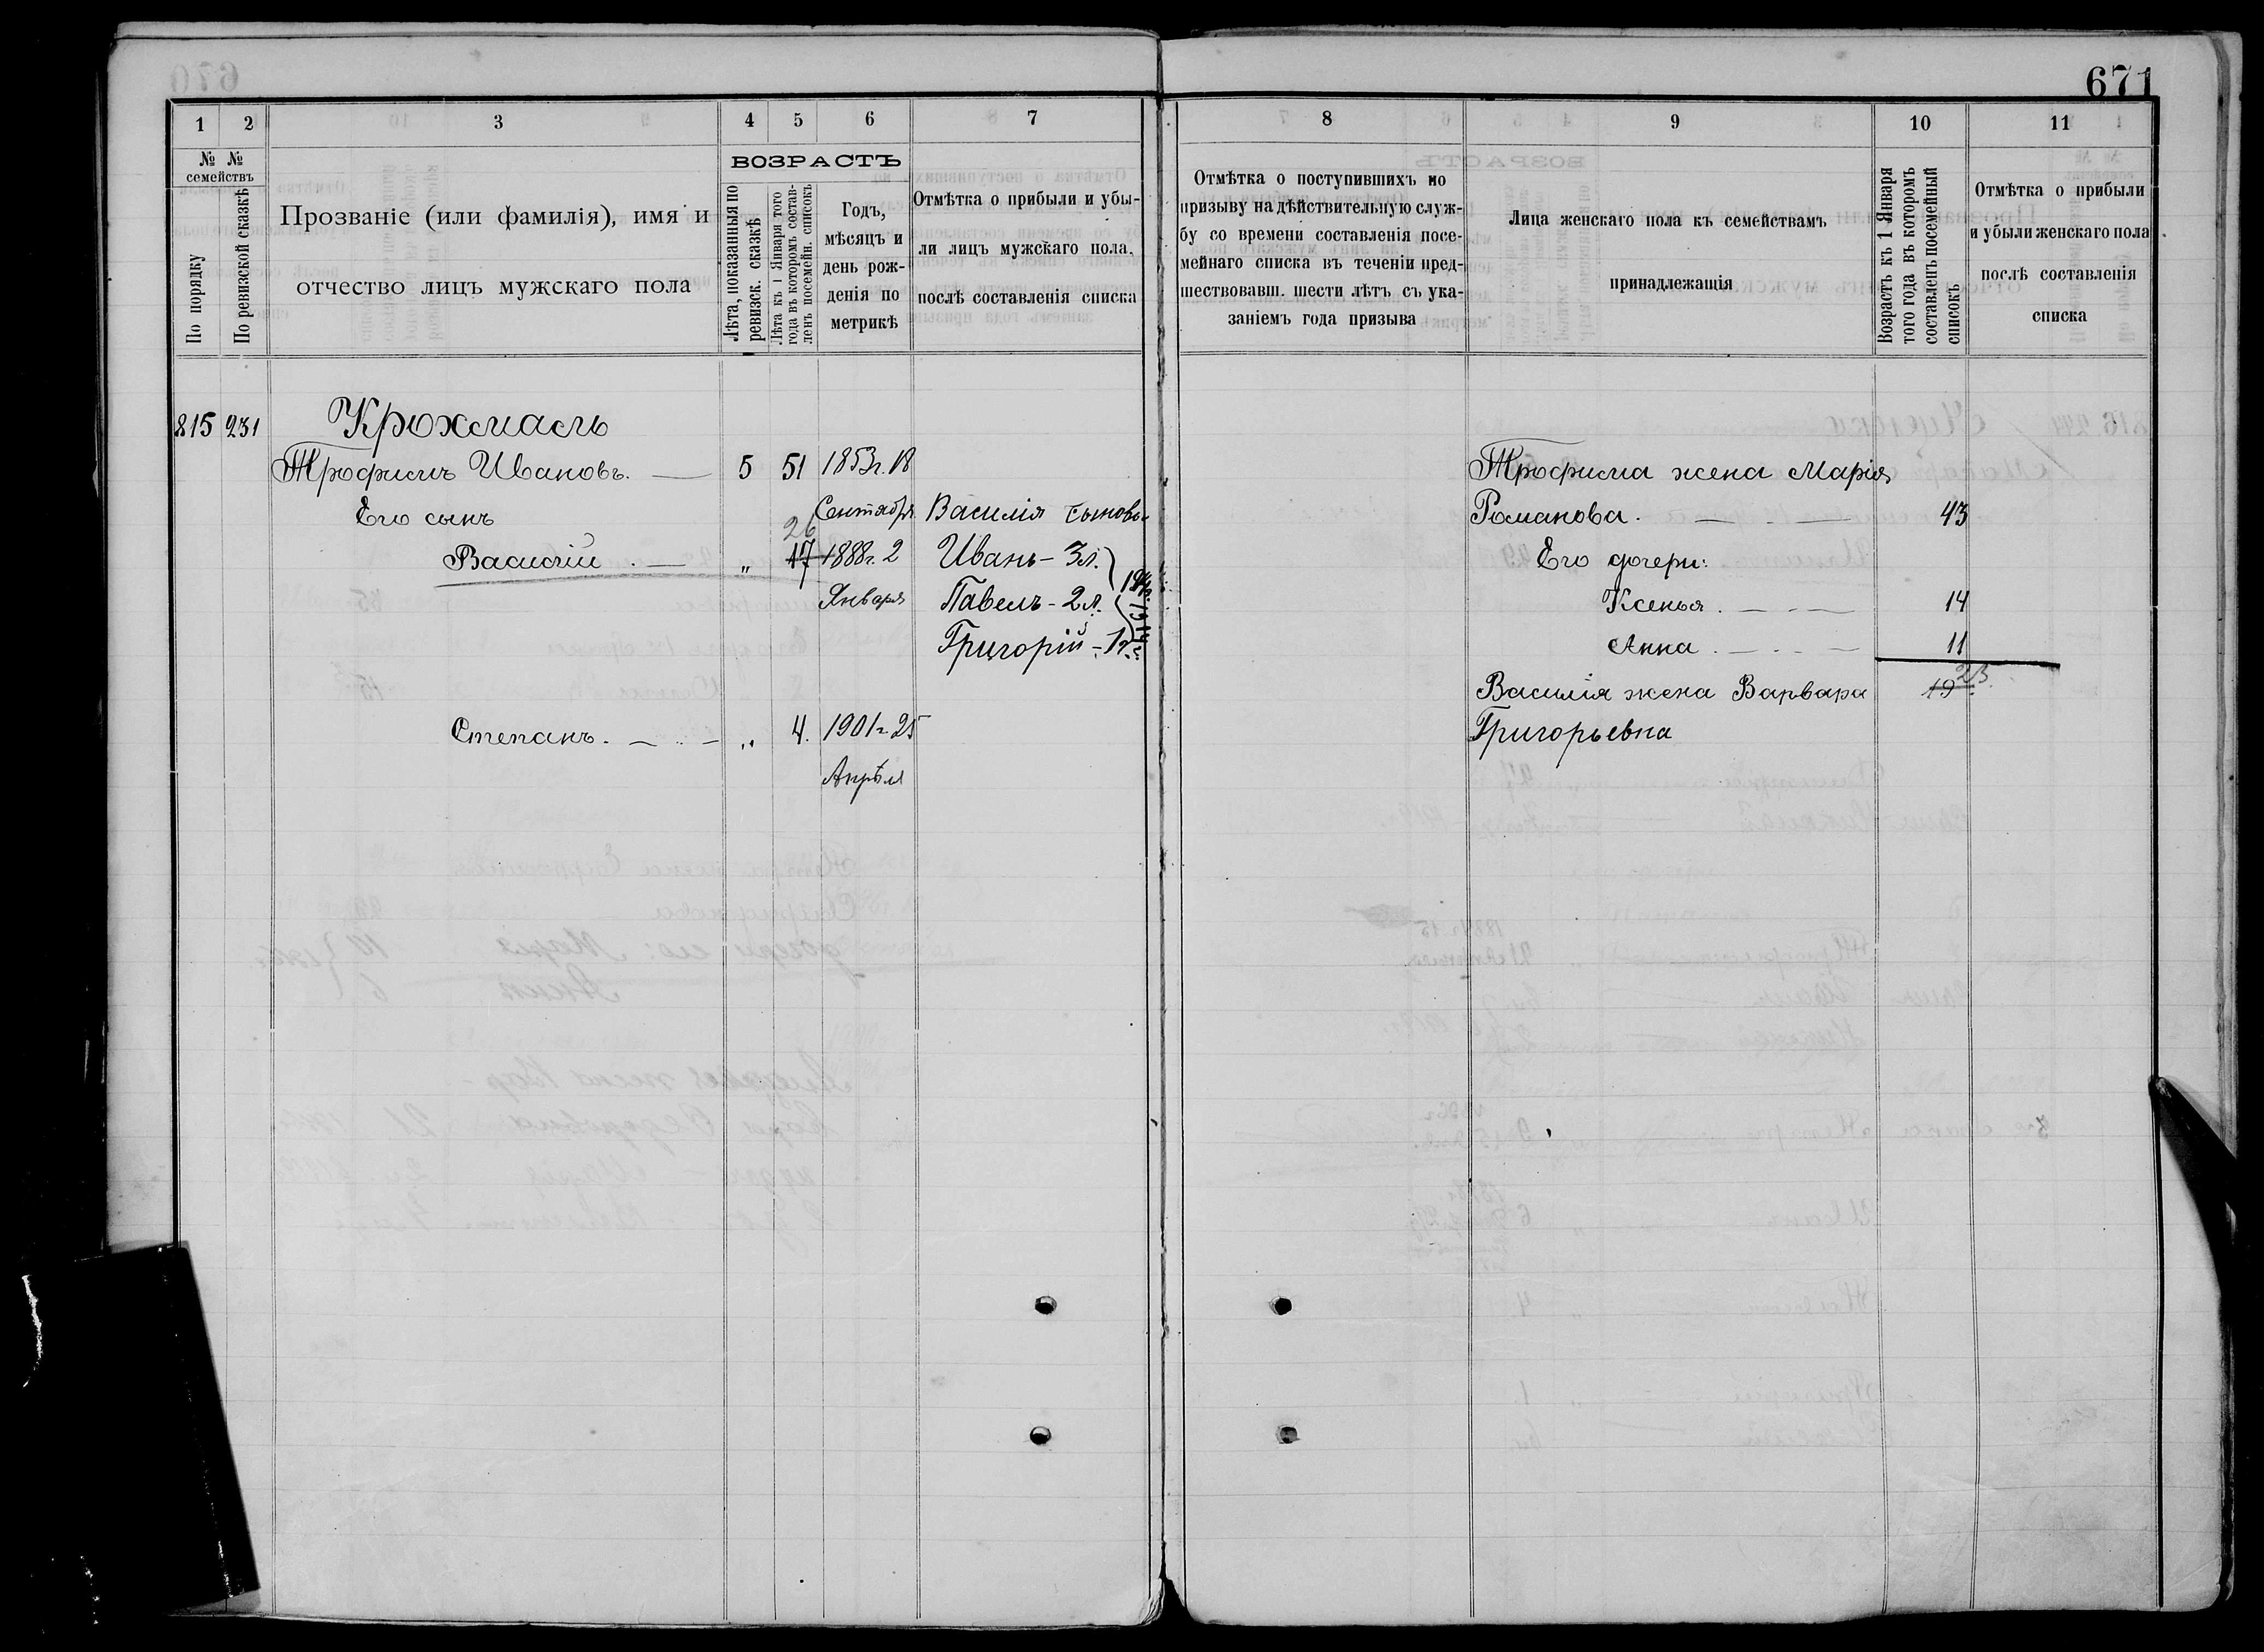 671
1 2 3 4 5 6 7
№ № семействъ
По порядку
По ревизской сказкѣ
Прозваніе (или фамилія), имя и
отчество лицъ мужскаго пола
ВОЗРАСТЪ
Лѣта, показанныя по
ревизск. сказкѣ
Лѣта къ 1 Января того
года въ которомъ состав-
ленъ посемейн. списокъ
Годъ,
мѣсяцъ и
день рож-
денія по
метрикѣ
Отмѣтка о прибыли и убы-
ли лицъ мужскаго пола,
послѣ составленія списка
815 231 Крохмаль
Трофимъ Ивановъ. — 5 51 1853г. 18
Сентября
Его сынъ
26
Василій . — „ 17 1888г. 2
Января
Василія сыновья
Иванъ – 3л.
Павелъ – 2л.
Григорій – 1г.
1914г.
Степанъ. — „ 4. 1901г. 25
Апрѣля
8 9 10 11
Отмѣтка о поступившихъ по
призыву на дѣйствительную служ-
бу со времени составленія посе-
мейнаго списка въ теченіи пред-
шествовавш. шести лѣтъ съ ука-
заніемъ года призыва
Лица женскаго пола къ семействамъ
принадлежащія
Возрастъ къ 1 Января
того года въ которомъ
составленъ посемейный
списокъ
Отмѣтка о прибыли
и убыли женскаго пола
послѣ составленія
списка
Трофима жена Марія
Романова. — 43
Его дочери:
Ксенья . — 14
Анна . — 11
Василія жена Варвара 19 23.
Григорьевна